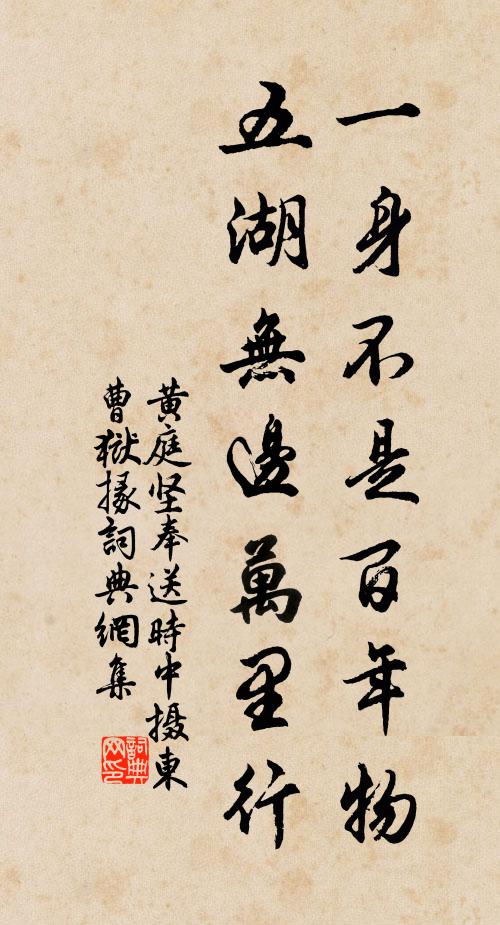 一身不是百年物
五湖無邊萬里行
黄庭坚奉送時中摄東
曹獄掾詞典網集
詞典网印